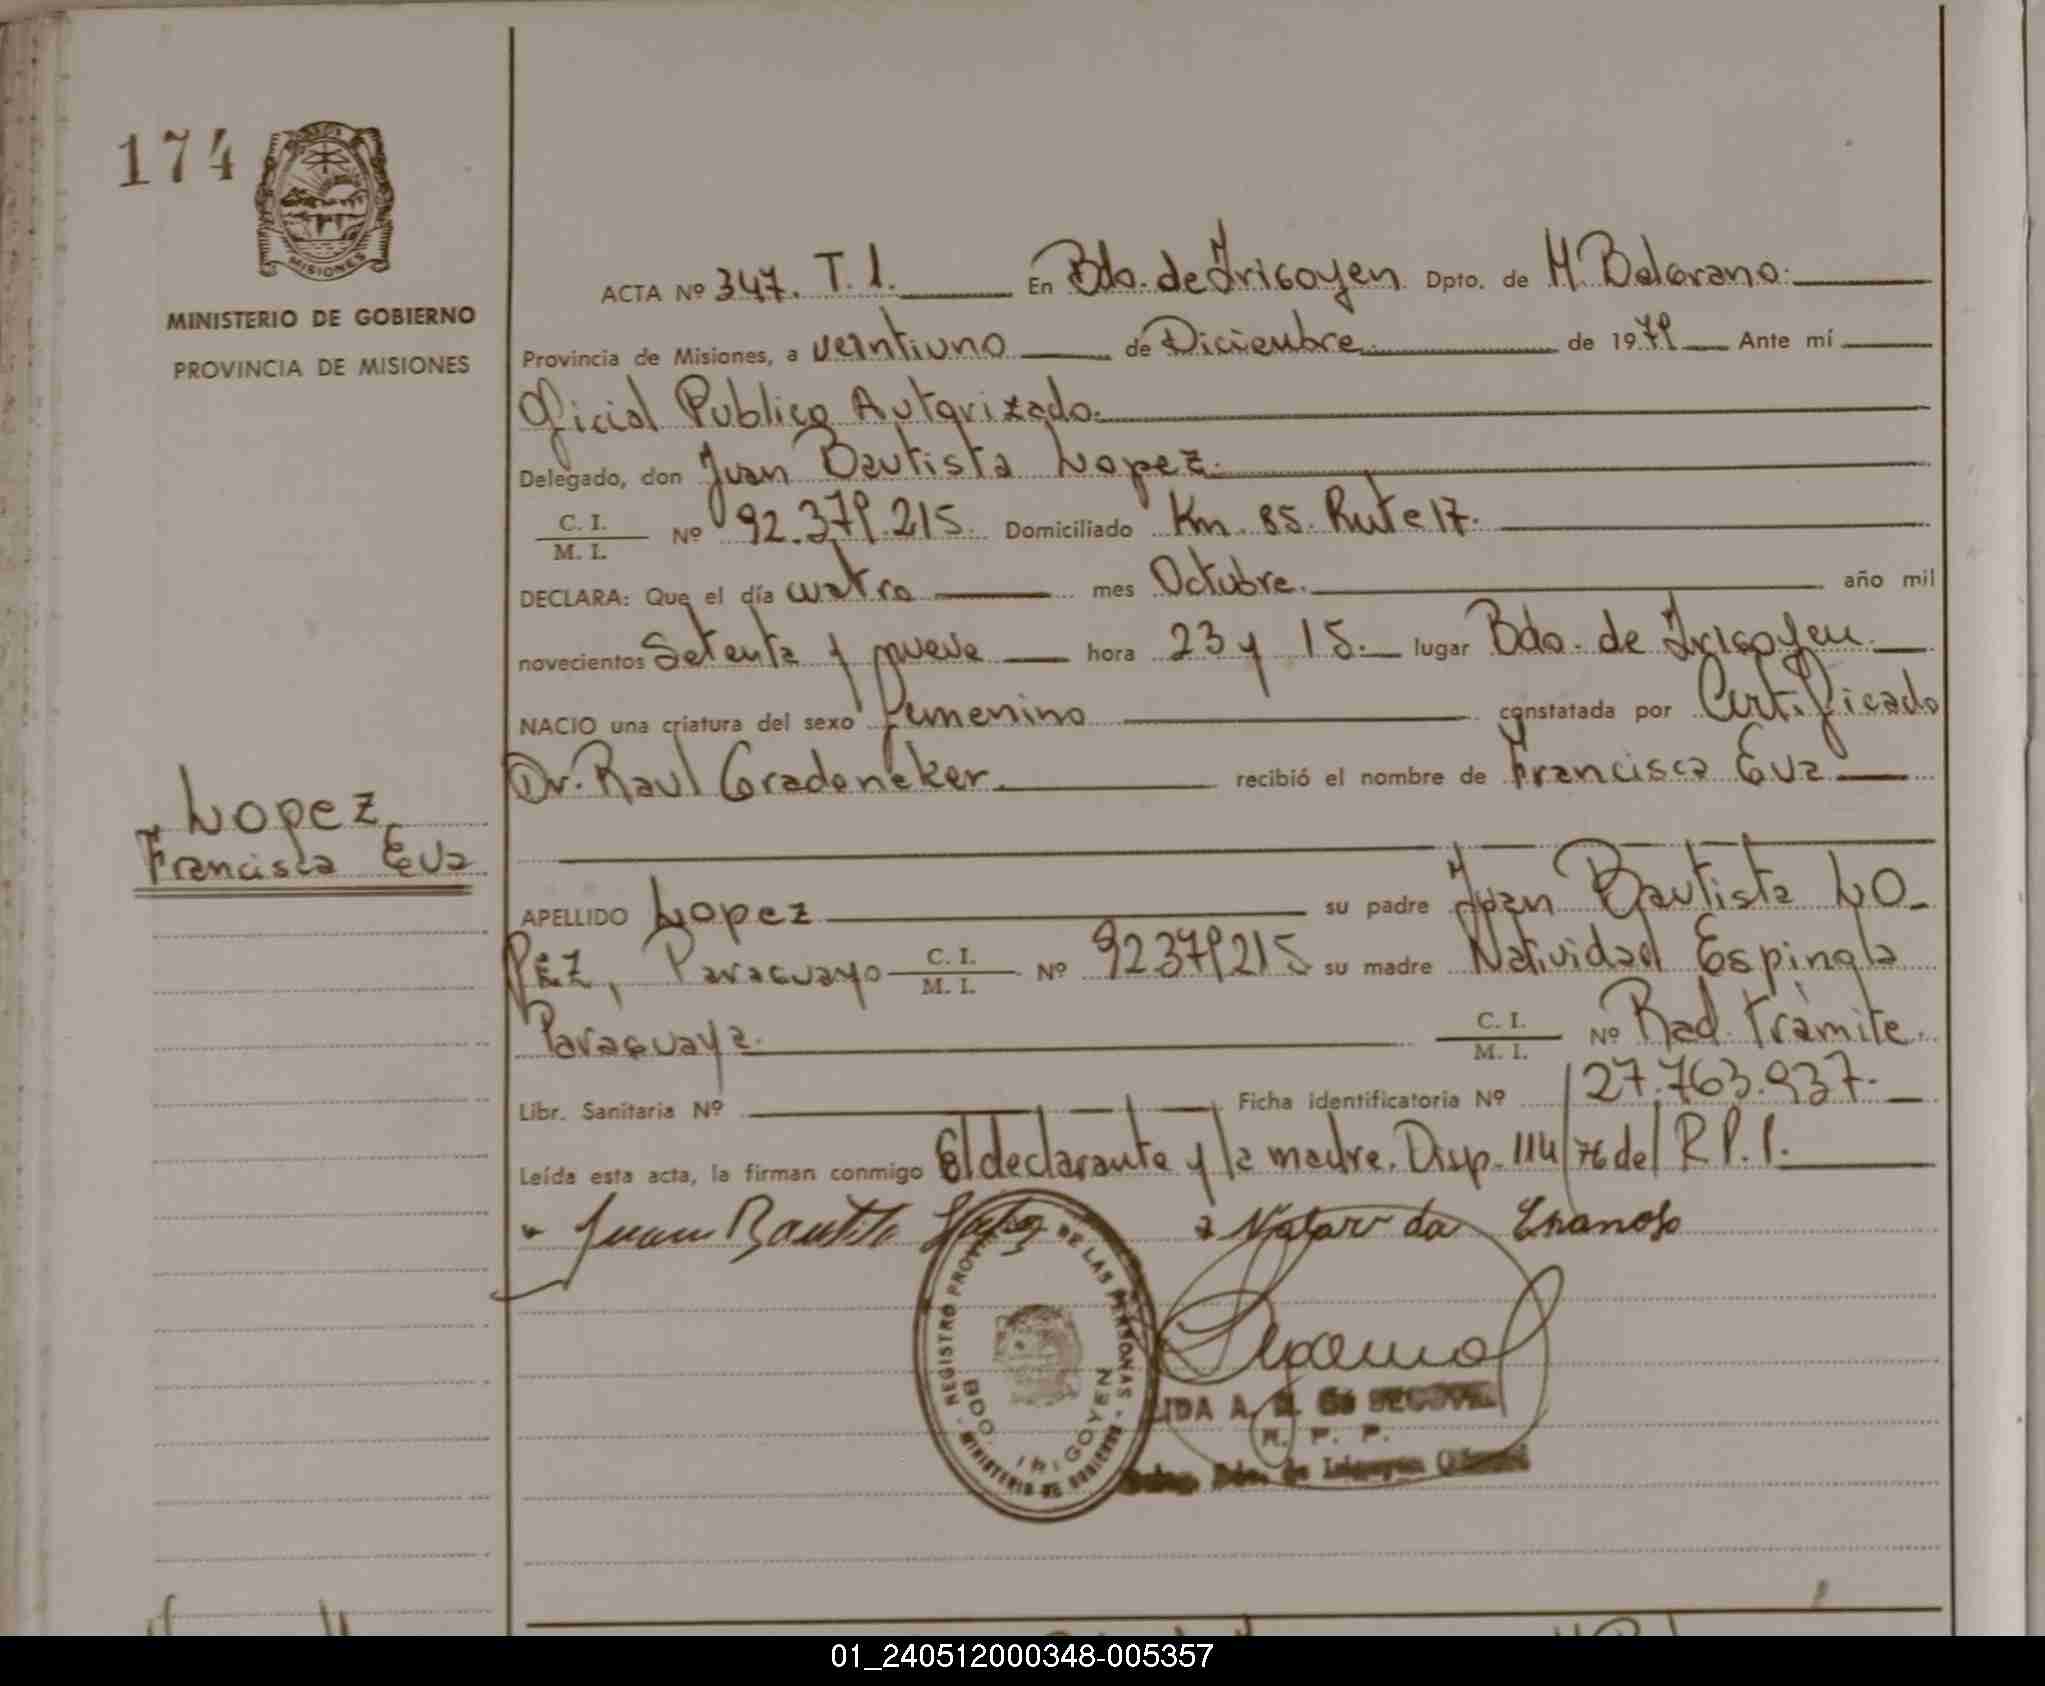 174
MISIONES
MINISTERIO DE GOBIERNO
PROVINCIA DE MISIONES
Lopez
Francisca Eva
ACTA Nº 347. T. 1. En Bdo. de Irigoyen Dpto. de M. Belgrano.
Provincia de Misiones, a veintiuno de Diciembre. de 1979 Ante mí
Oficial Publico Autorizado.
Delegado, don Juan Bautista Lopez.
C. I.
M. I. Nº 92.379.215. Domiciliado Km. 85. Ruta 17.
DECLARA: Que el día cuatro mes Octubre. año mil
novecientos Setenta y nueve hora 23 y 15. lugar Bdo. de Irigoyen.
NACIO una criatura del sexo femenino constatada por Certificado
Dr. Raul Gradeneker. recibió el nombre de Francisca Eva
APELLIDO Lopez su padre Juan Bautista LO-
PEZ, Paraguayo C. I.
M. I. Nº 92379215 su madre Natividad Espingla
Paraguaya. C. I.
M. I. Nº Rad. trámite.
Libr. Sanitaria Nº Ficha identificatoria Nº 27.763.937.
Leída esta acta, la firman conmigo El declarante y la madre. Disp. 114/76 del R.P.P.
Juan Bautista
REGISTRO PROV DE LAS PERSONAS
BDO. IRIGOYEN
MINISTERIO DE GOBIERNO
LIDA A.
R. P. P.
Bdo. de Irigoyen
01_240512000348-005357